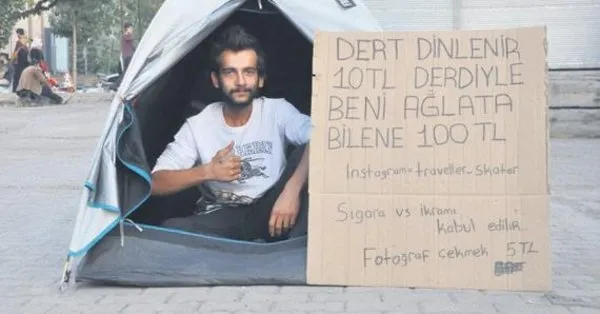 DERT DİNLENİR
10TL DERDİYLE
BENİ AĞLATA
BİLENE 100 TL
Instagram= traveller_skater
Sigara vs ikramı
kabul edilir.
Fotoğraf çekmek 5 TL